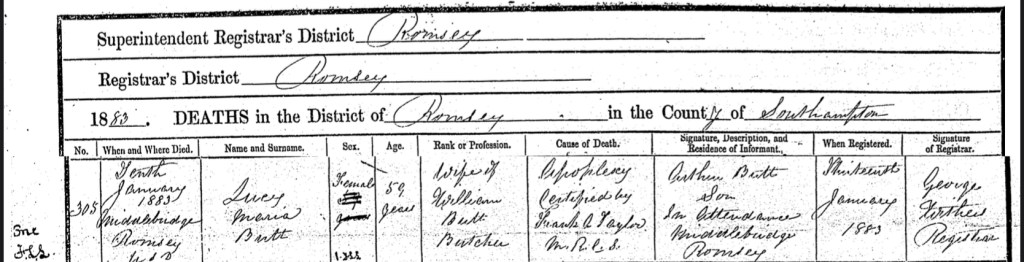 Superintendent Registrar's District Romsey
Registrar's District Romsey
1883. DEATHS in the District of Romsey in the County of Southampton
No. When and Where Died. Name and Surname. Sex. Age. Rank or Profession. Cause of Death. Signature, Description, and Residence of Informant. When Registered. Signature of Registrar.
305
Tenth
January
1883
Middlebridge
Romsey
Lucy
Maria
Butt
Female
59
years
Wife of
William
Butt
Butcher
Apoplexy
Certified by
Frank A Taylor
M.R.C.S.
Arthur Butt
Son
In Attendance
Middlebridge
Romsey
Thirteenth
January
1883
George
Registrar